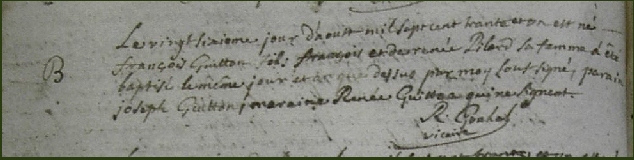 Le vingt sixieme jour d'aoust mil sept cent trante et un est né
B françois Guitton fils: françois et de renée Pilard sa femme a été
baptisé le même jour et an que dessus par moy soussigné, parain
joseph Guitton, maraine Renée Guitton qui ne signent.
vicaire